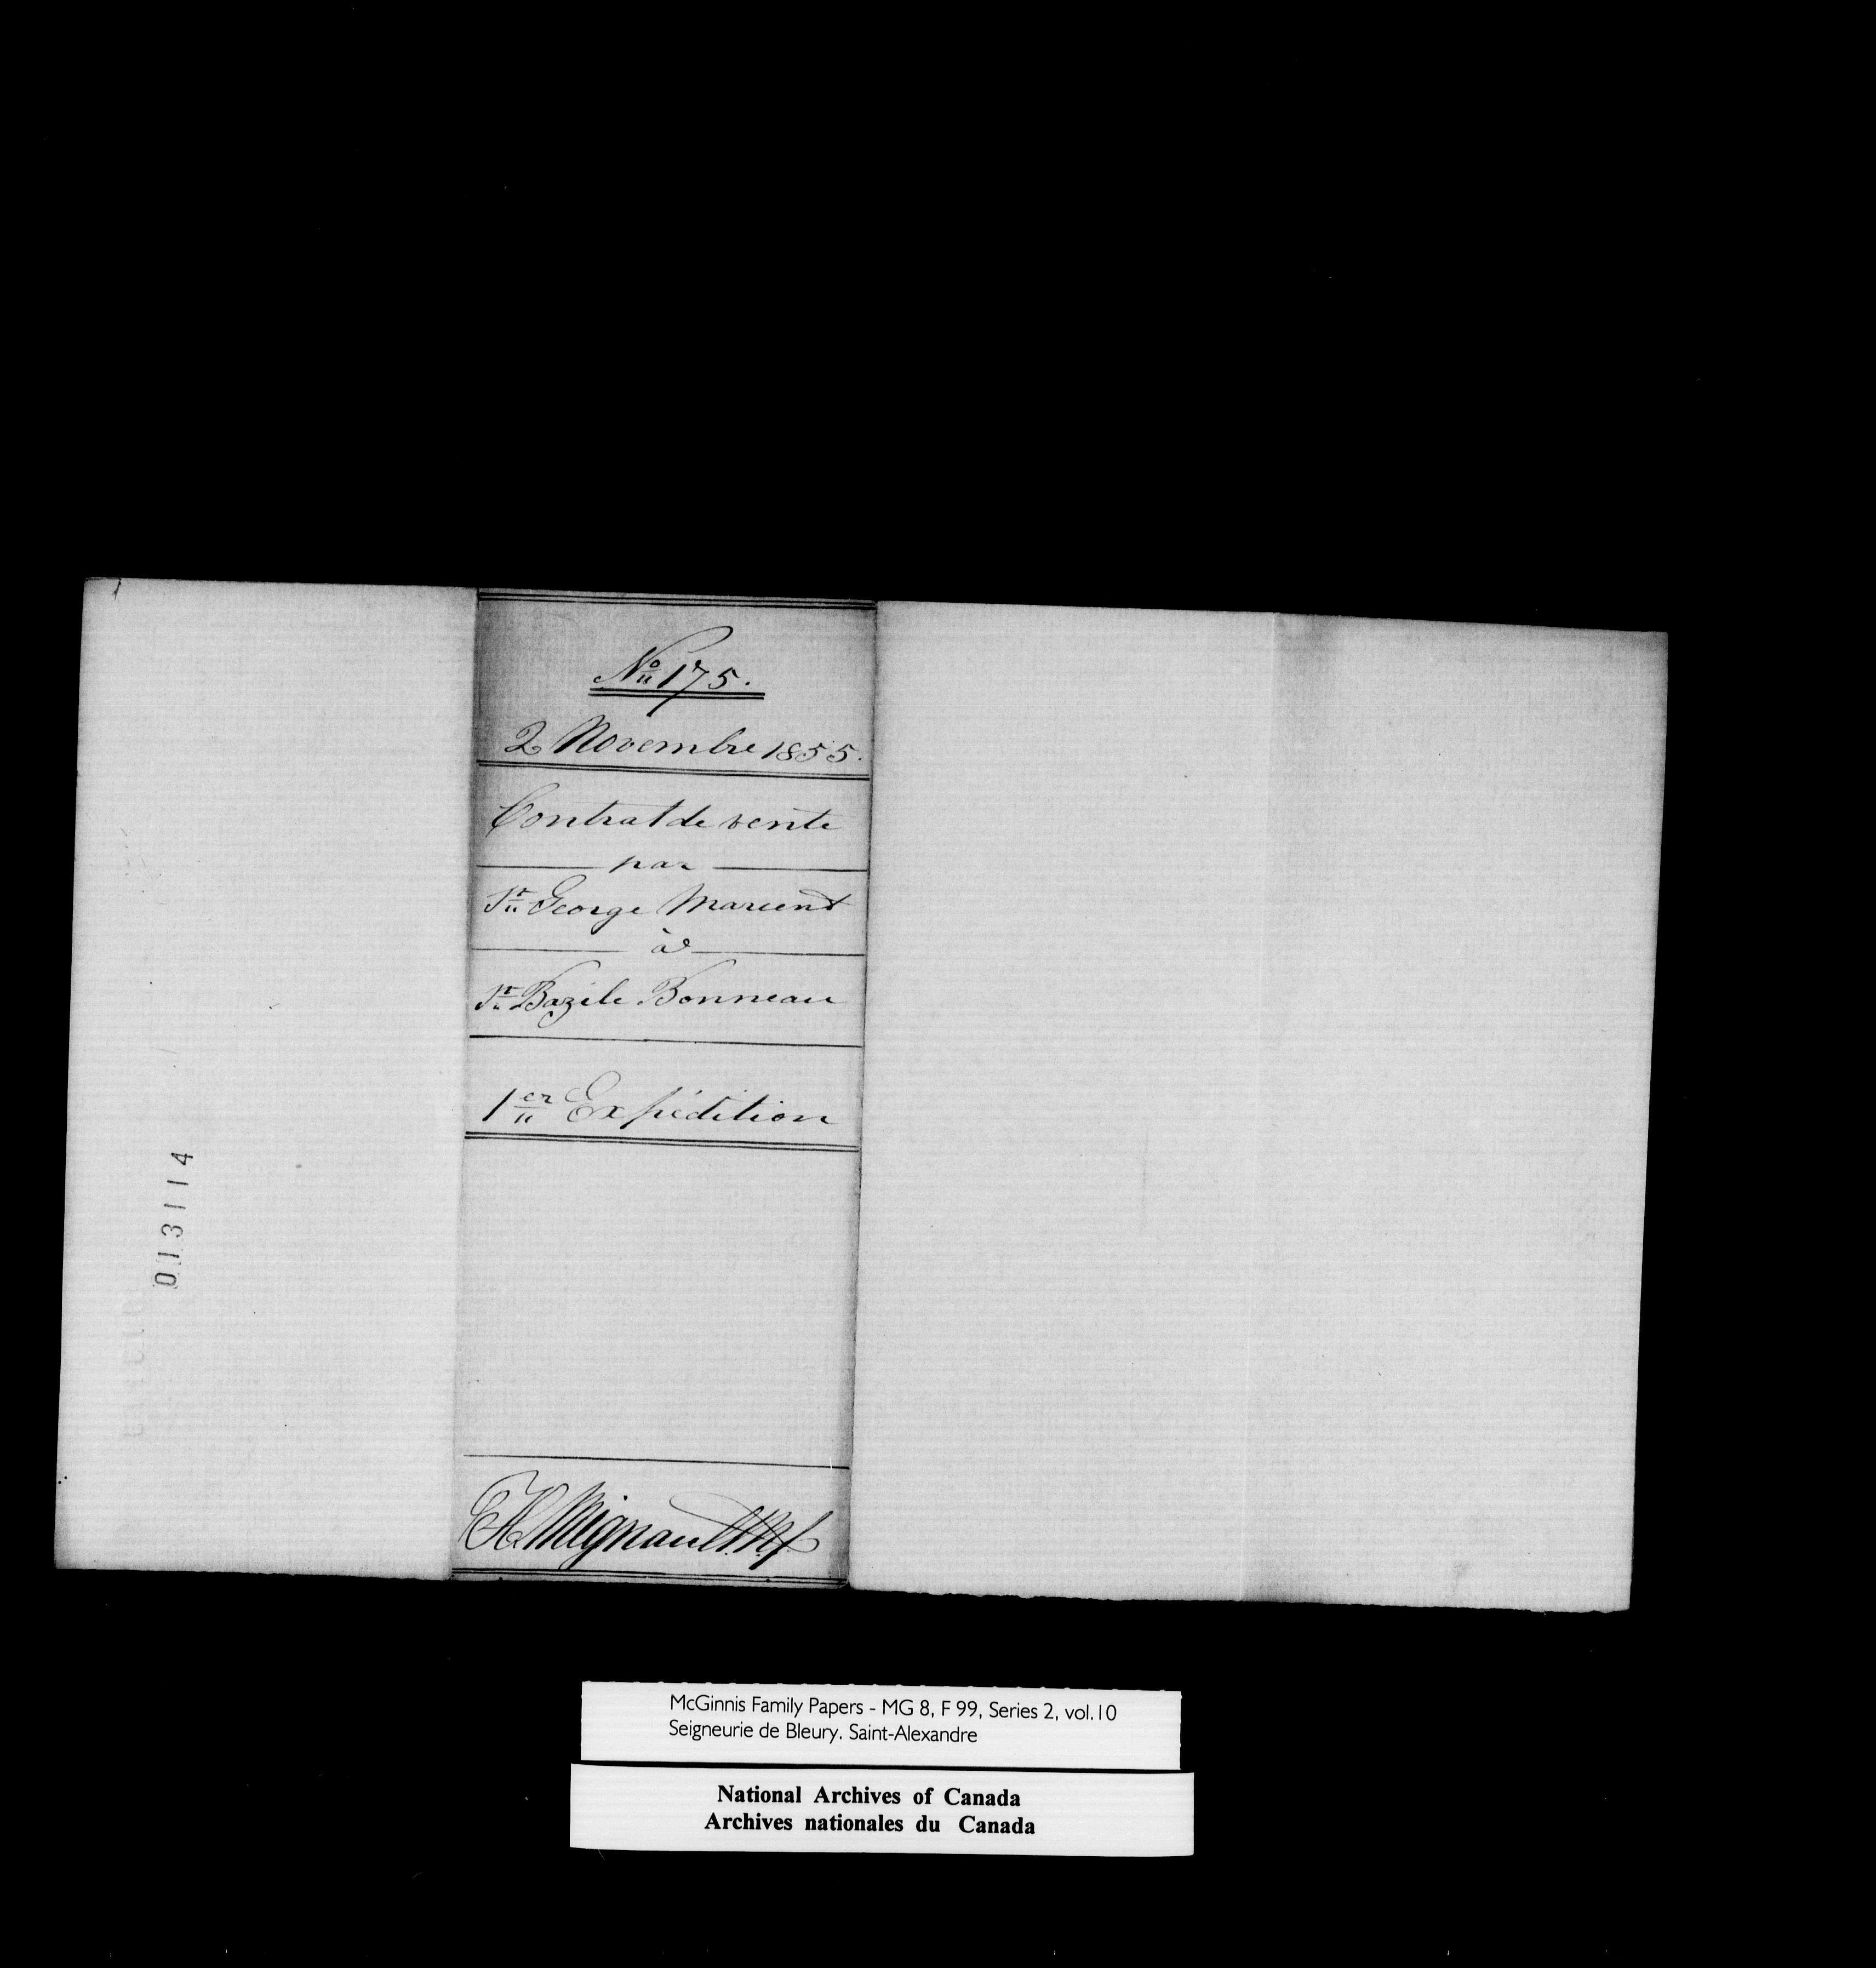 No 175.
2 Novembre 1855.
Contrat de vente
par
Sr George
à
Sr Bazile Bonneau
1er Expédition
Mignault
013114
McGinnis Family Papers - MG 8, F 99, Series 2, vol.10
Seigneurie de Bleury. Saint-Alexandre
National Archives of Canada
Archives nationales du Canada